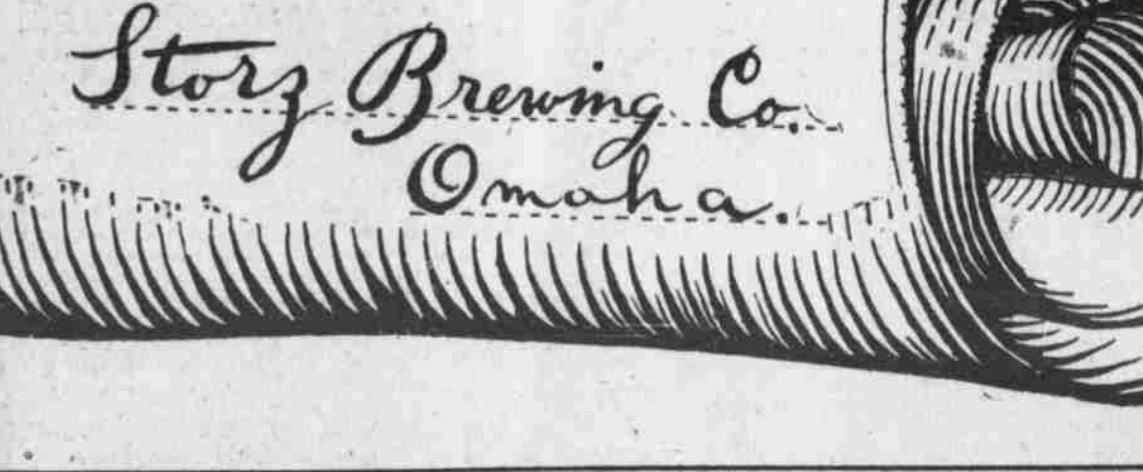 Storz Brewing Co.
Omaha.